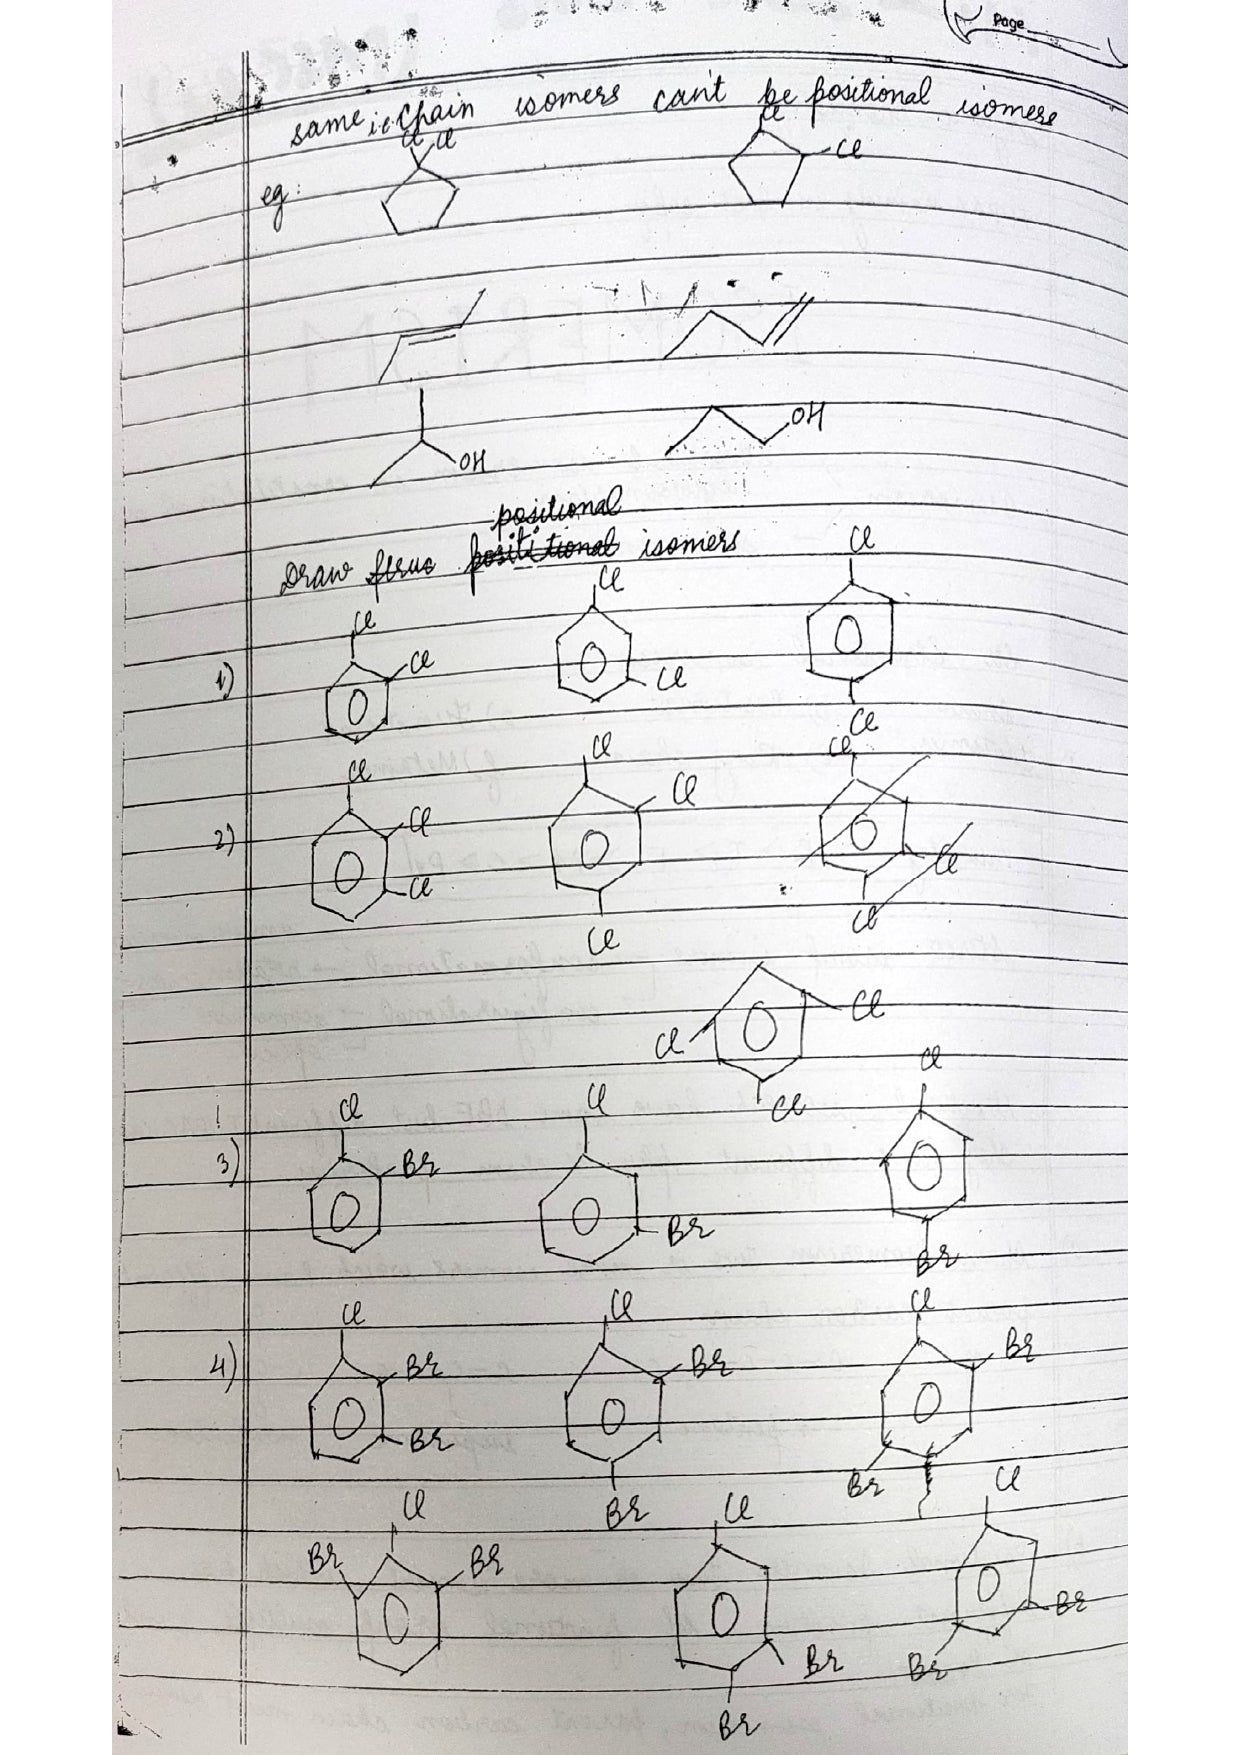 Page
same ie Chain isomers can't be positional isomers
eg:
Cl Cl
Cl
Cl
OH
OH
positional
Draw struc positional isomers
1)
Cl
Cl
Cl
Cl
Cl
Cl
2)
Cl
Cl
Cl
Cl
Cl
Cl
Cl
Cl
Cl
Cl
Cl
Cl
3)
Cl
Br
Cl
Br
Cl
Br
4)
Cl
Br
Br
Cl
Br
Br
Cl
Br
Br
Cl
Br
Br
Cl
Br
Br
Cl
Br
Br